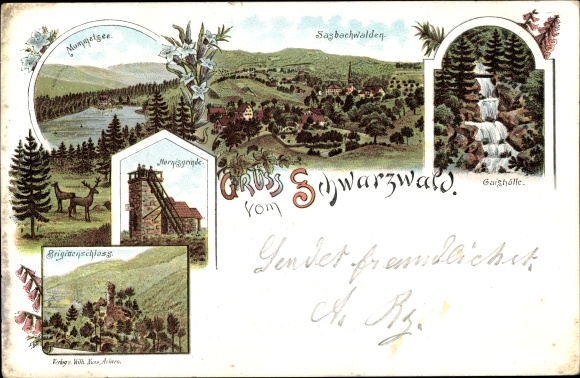 Mummelsee.
Sasbachwalden.
Gaishölle.
Hornisgrinde.
Gruss
vom
Schwarzwald.
Brigittenschloss.
Sendet freundlichst
A.
Verlag v. Wilh. Achern.